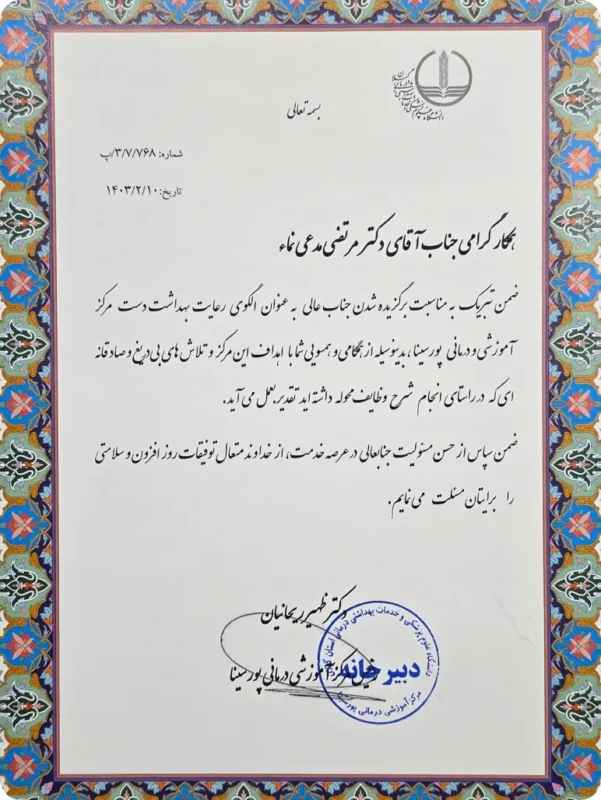 بسمه تعالی
شماره: ۳/۷/۷۶۸/پ
تاریخ: ۱۴۰۳/۲/۱۰
همکار گرامی جناب آقای دکتر مرتضی مدعی نماء
ضمن تبریک به مناسبت برگزیده شدن جناب عالی به عنوان الگوی رعایت بهداشت دست مرکز
آموزشی و درمانی پورسینا، بدینوسیله از همگامی و همسویی شما با اهداف این مرکز و تلاش های بی دریغ و صادقانه
ای که در راستای انجام شرح وظایف محوله داشته اید تقدیر بعمل می آید.
ضمن سپاس از حسن مسئولیت جنابعالی در عرصه خدمت، از خداوند متعال توفیقات روز افزون و سلامتی
را برایتان مسئلت می نمایم.
دکتر ظهیر ریحانیان
رئیس مرکز آموزشی درمانی پورسینا
دانشگاه علوم پزشکی و خدمات بهداشتی درمانی استان گیلان
دبیرخانه
مرکز آموزشی درمانی پورسینا